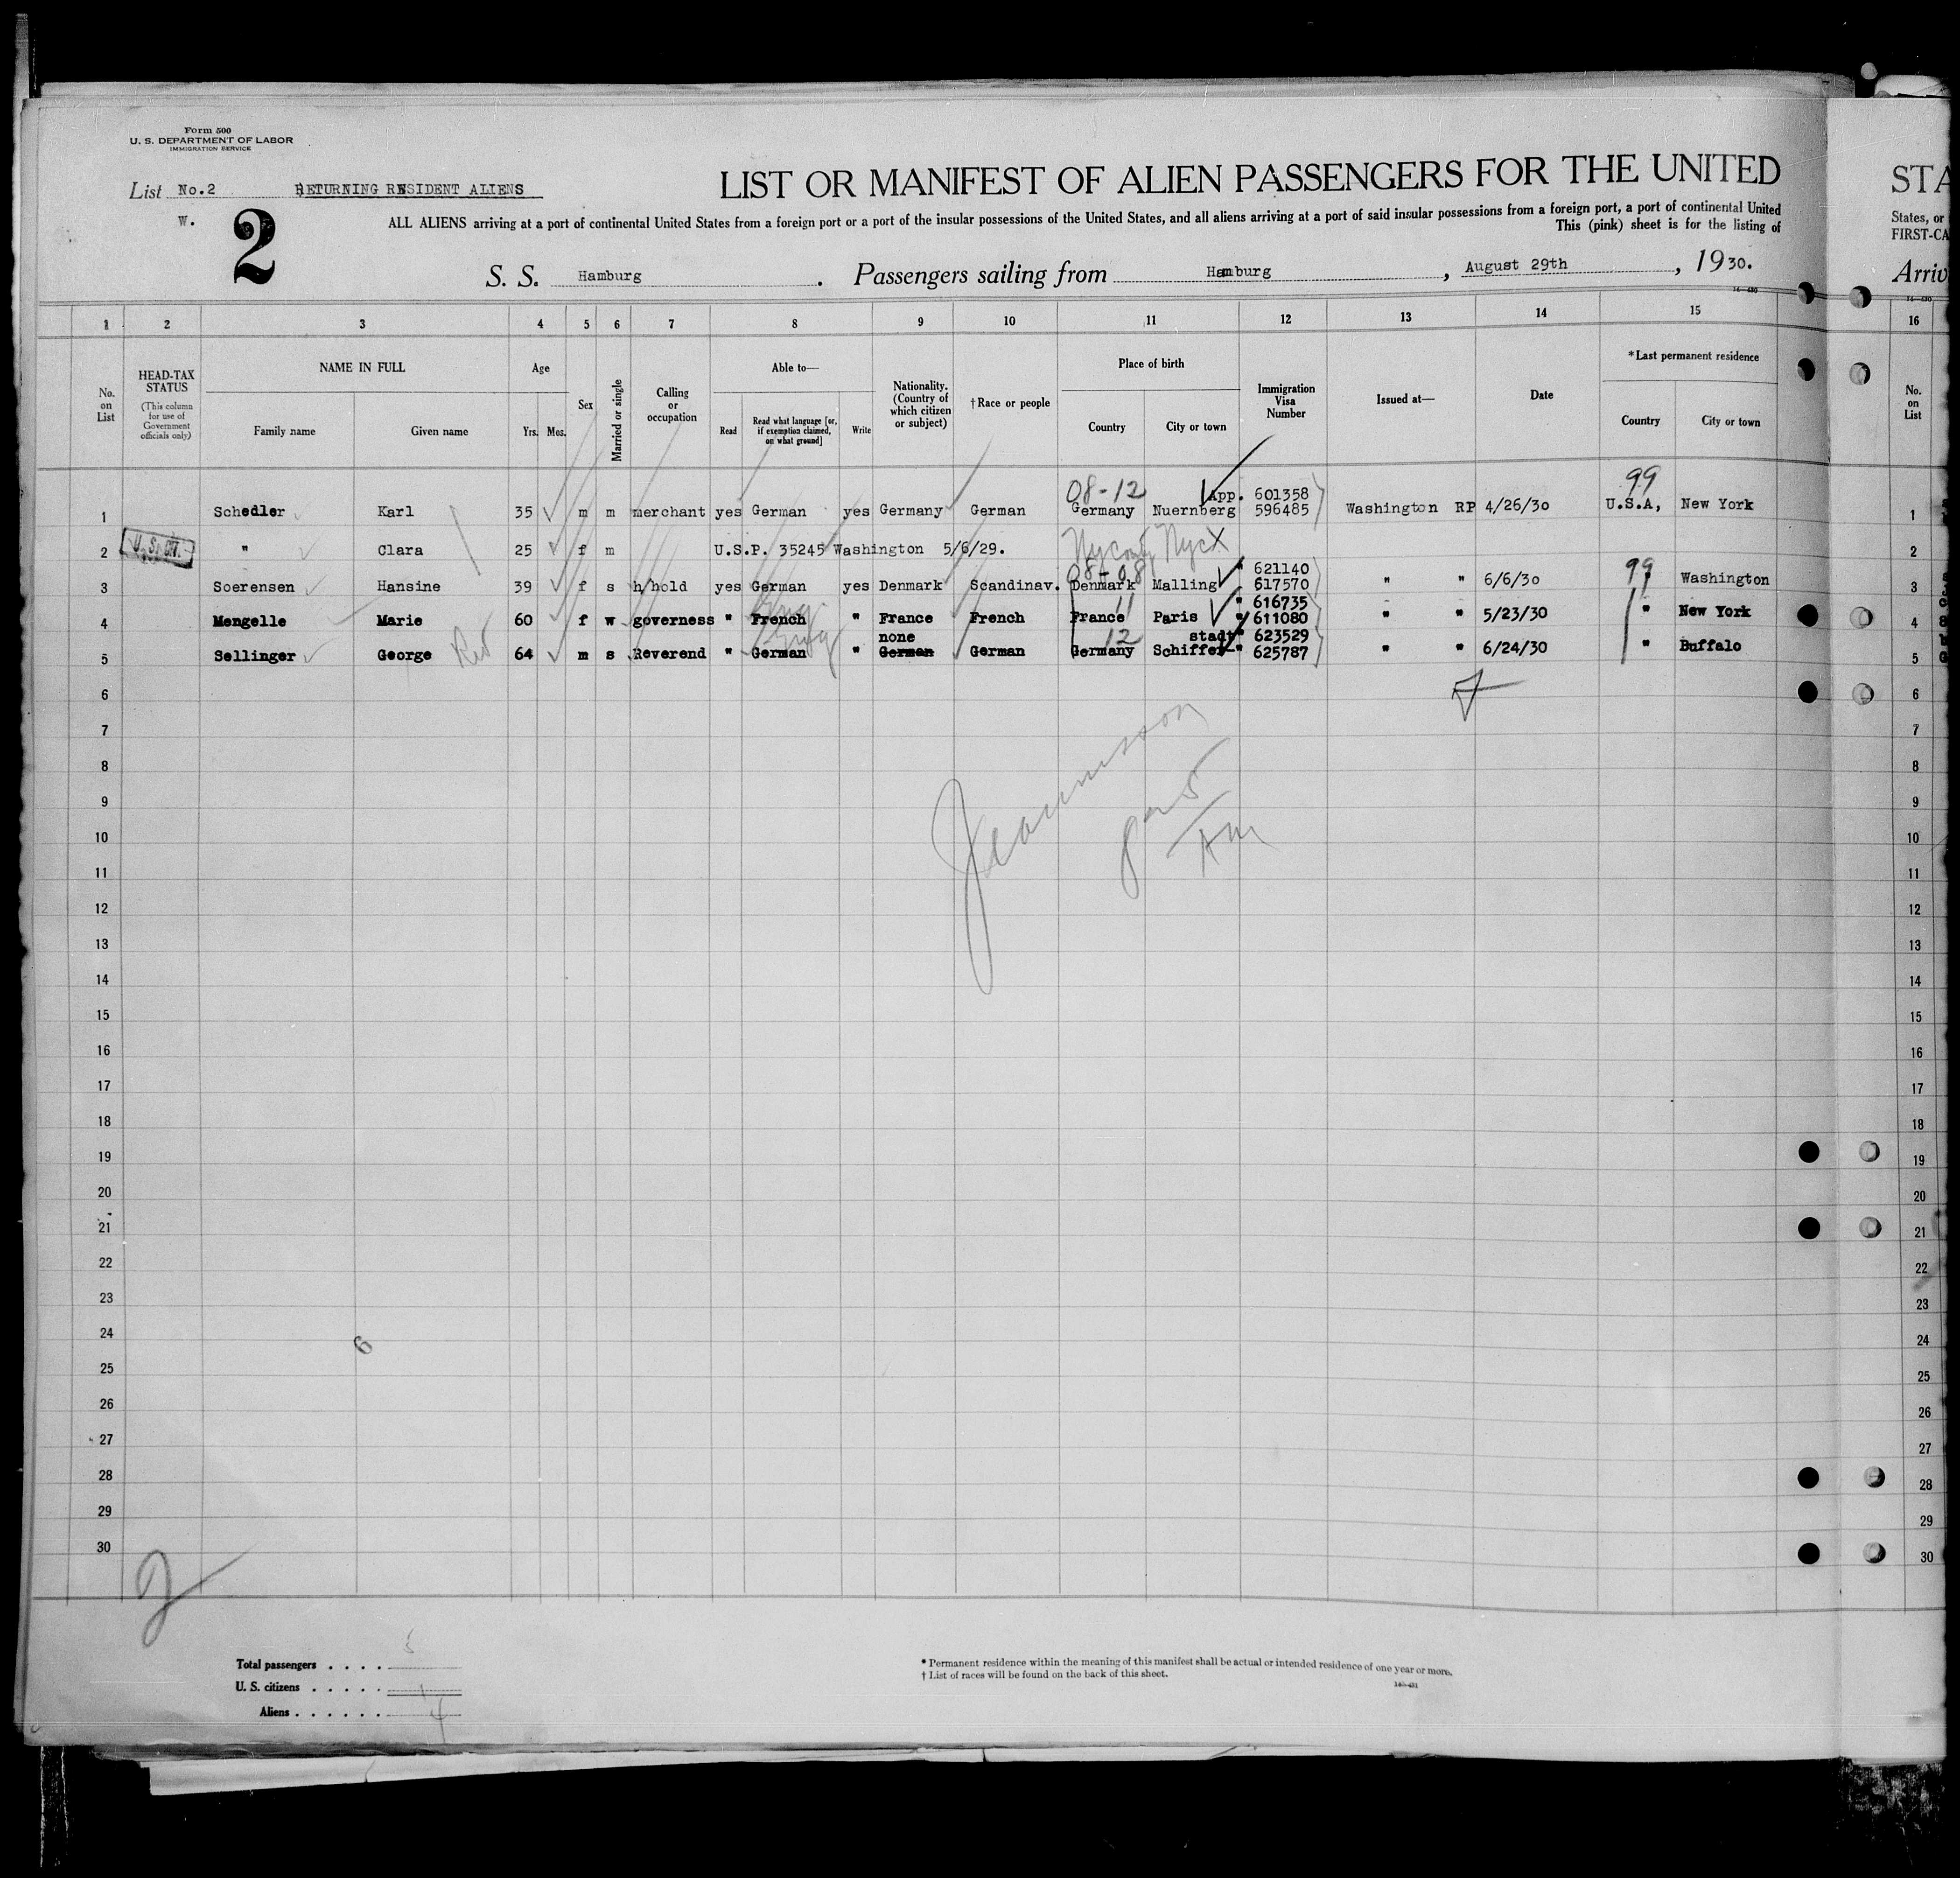 Form 500
U. S. DEPARTMENT OF LABOR
IMMIGRATION SERVICE
List No.2 RETURNING RESIDENT ALIENS
W.
2
LIST OR MANIFEST OF ALIEN PASSENGERS FOR THE UNITED
ALL ALIENS arriving at a port of continental United States from a foreign port or a port of the insular possessions of the United States, and all aliens arriving at a port of said insular possessions from a foreign port, a port of continental United
This (pink) sheet is for the listing of
S. S. Hamburg. Passengers sailing from Hamburg, August 29th, 1930.
STA
States, or
FIRST-CA
Arriv
1 2 3 4 5 6 7 8 9 10 11 12 13 14 15 16
No. on List
HEAD-TAX STATUS
(This column for use of Government officials only)
NAME IN FULL
Family name
Given name
Age
Yrs. Mos.
Sex
Married or single
Calling or occupation
Able to—
Read
Read what language [or, if exemption claimed, on what ground]
Write
Nationality. (Country of which citizen or subject)
†Race or people
Place of birth
Country
City or town
Immigration Visa Number
Issued at—
Date
*Last permanent residence
Country
City or town
No. on List
08-12 App. 601358 99
1 Schedler Karl 35 m m merchant yes German yes Germany German Germany Nuernberg 596485 Washington RP 4/26/30 U.S.A, New York 1
2 U.S. CIT. " Clara 25 f m U.S.P. 35245 Washington 5/6/29. 2
08-08 " 621140 99
3 Soerensen Hansine 39 f s h/hold yes German yes Denmark Scandinav. Denmark Malling 617570 " " 6/6/30 Washington 3
Eng. 11 " 616735
4 Mengelle Marie 60 f w governess " French " France French France Paris " 611080 " " 5/23/30 " New York 4
Eng none 12 stadt " 623529
5 Sellinger George 64 m s Reverend " German " German German Germany Schiffer- " 625787 " " 6/24/30 " Buffalo 5
6 6
7 7
8 8
9 9
10 10
11 11
12 12
13 13
14 14
15 15
16 16
17 17
18 18
19 19
20 20
21 21
22 22
23 23
24 6 24
25 25
26 26
27 27
28 28
29 29
30 30
2
Total passengers . . . . 5
U. S. citizens . . . . . 1
Aliens . . . . . . 4
* Permanent residence within the meaning of this manifest shall be actual or intended residence of one year or more.
† List of races will be found on the back of this sheet.